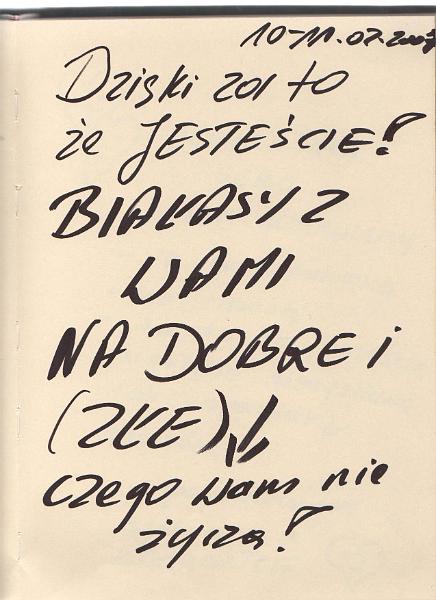 10-11.07.2007
Dzięki za to
że JESTEŚCIE!
BIAŁASY Z
WAMI
NA DOBRE i
(ZŁE)!!
czego wam nie
życzą!